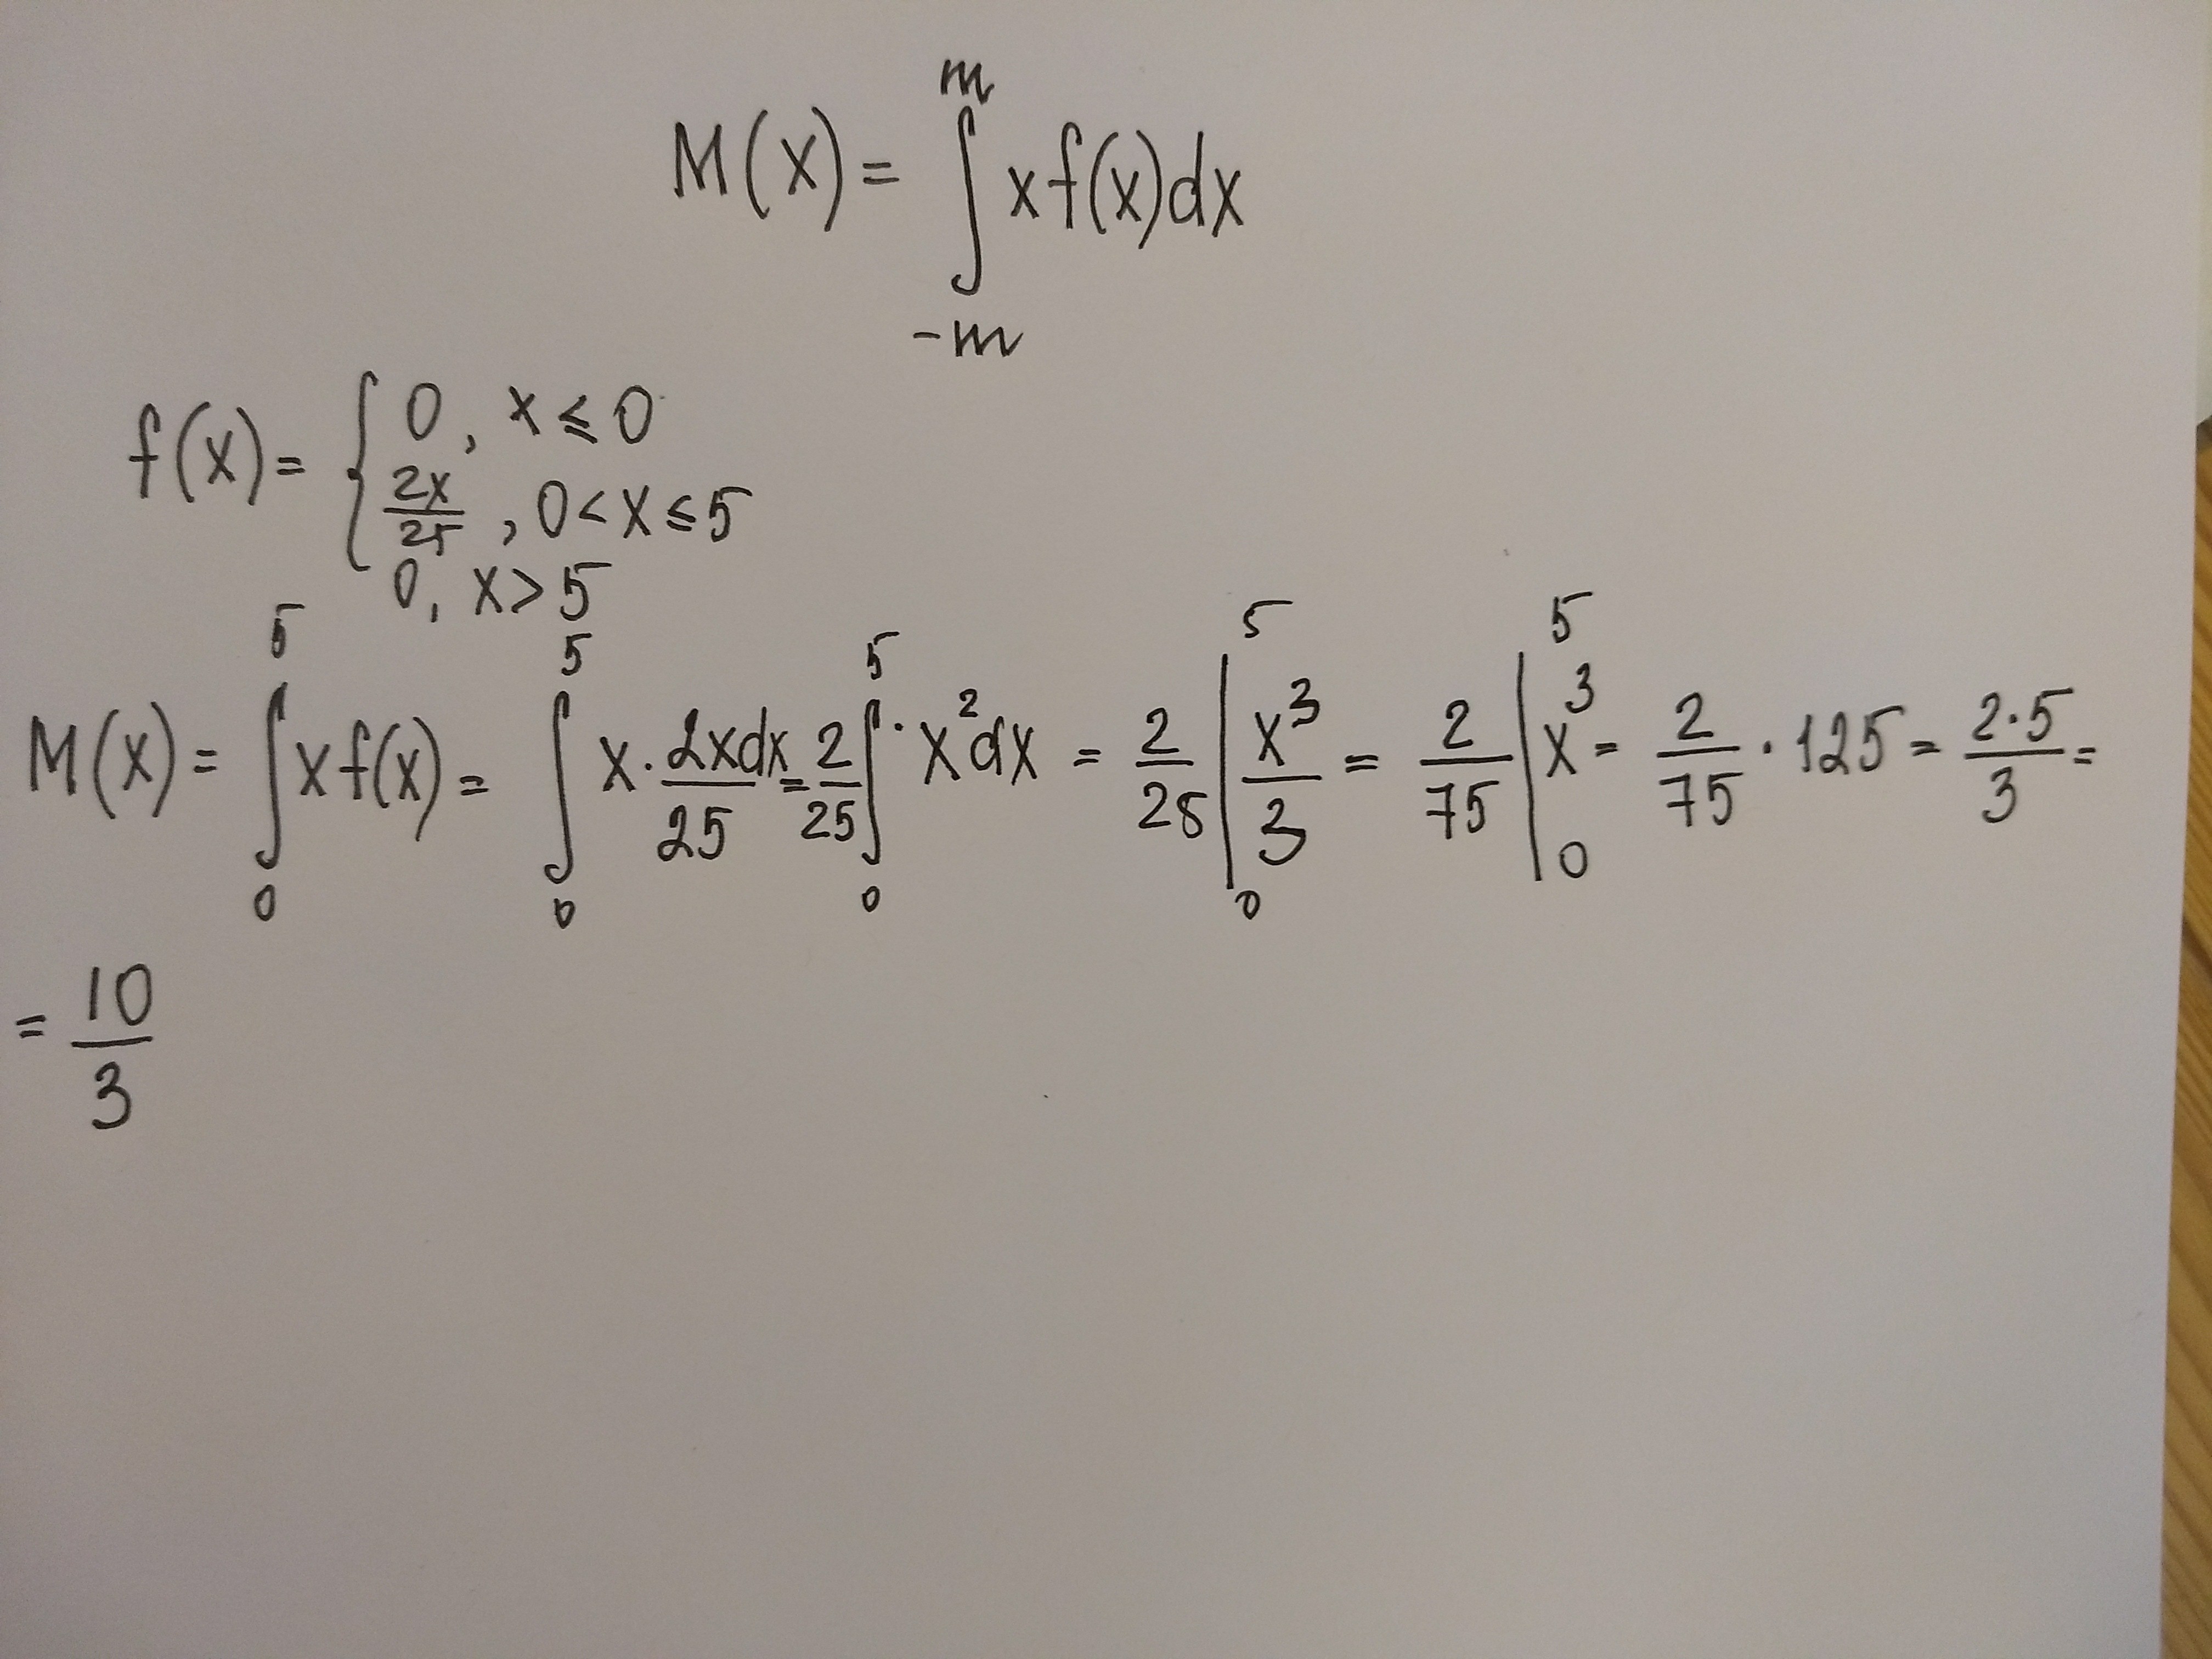 M(x) = ∫_{-m}^{m} x f(x) dx
f(x) = { 0, x ≤ 0
2x/25, 0 < x ≤ 5
0, x > 5
M(x) = ∫_0^5 x f(x) = ∫_0^5 x · 2xdx/25 = 2/25 ∫_0^5 · x² dx = 2/25 |_0^5 x³/3 = 2/75 |_0^5 x³ = 2/75 · 125 = 2·5/3 =
= 10/3